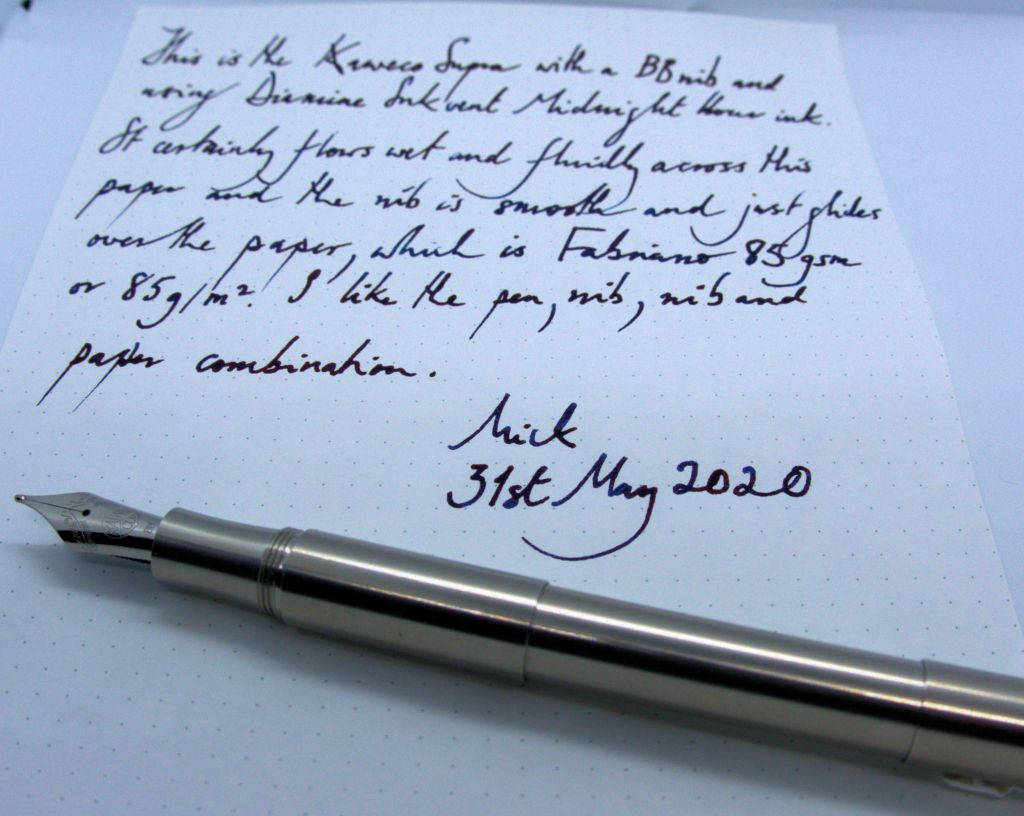 This is the Kaweco Supra with a BB nib and
using Diamine Inkvent Midnight Hour ink.
It certainly flows wet and fluidly across this
paper and the nib is smooth and just glides
over the paper, which is Fabriano 85gsm
or 85g/m². I like the pen, nib, nib and
paper combination.
Mick
31st May 2020